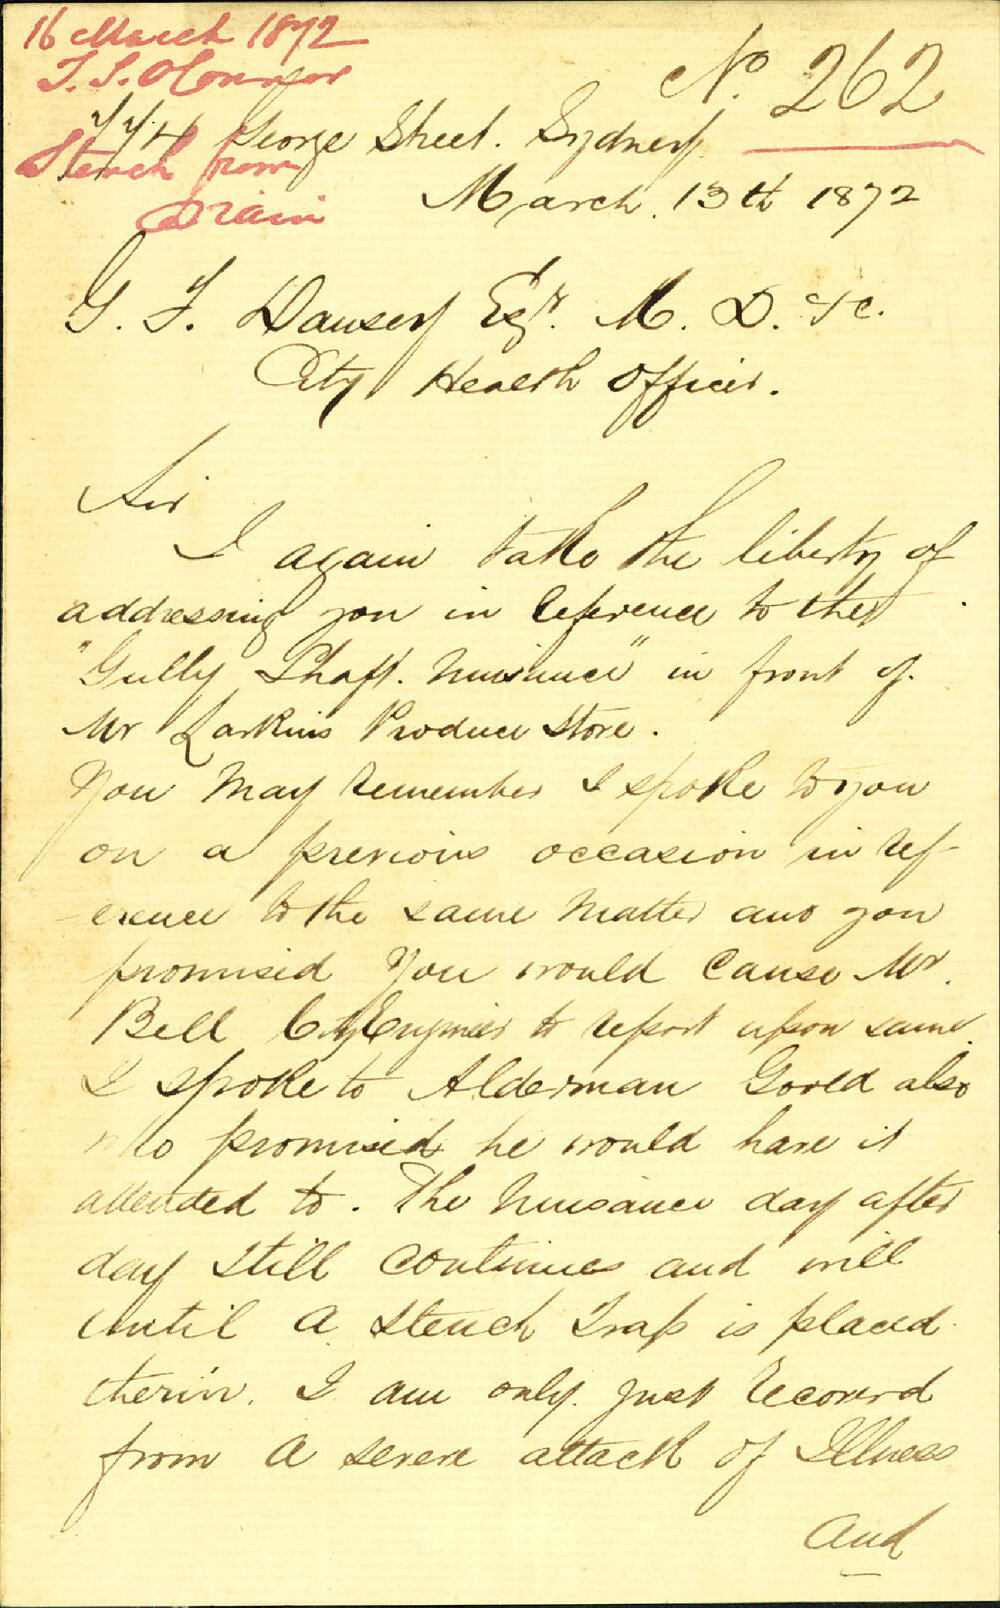 16 March 1872
J. S. O'Connor
No. 262
774 George Street. Sydney.
Stench from
Drain
March. 13th 1872
G. F. Dansey Esqr. M. D. &c.
City Health Officer.
Sir
I again take the liberty of
addressing you in reference to the
"Gully Shaft. Nuisance" in front of.
Mr Larkins Produce Store.
You May remember I spoke to you
on a previous occasion in ref-
-erence to the same Matter and you
promised You would cause Mr.
Bell City Engineer to report upon same.
I spoke to Alderman Gored also
who promised he would have it
attended to. The Nuisance day after
day still continues and will
until a stench Trap is placed
therin. I am only just recoverd
from a severe attack of Illness
and